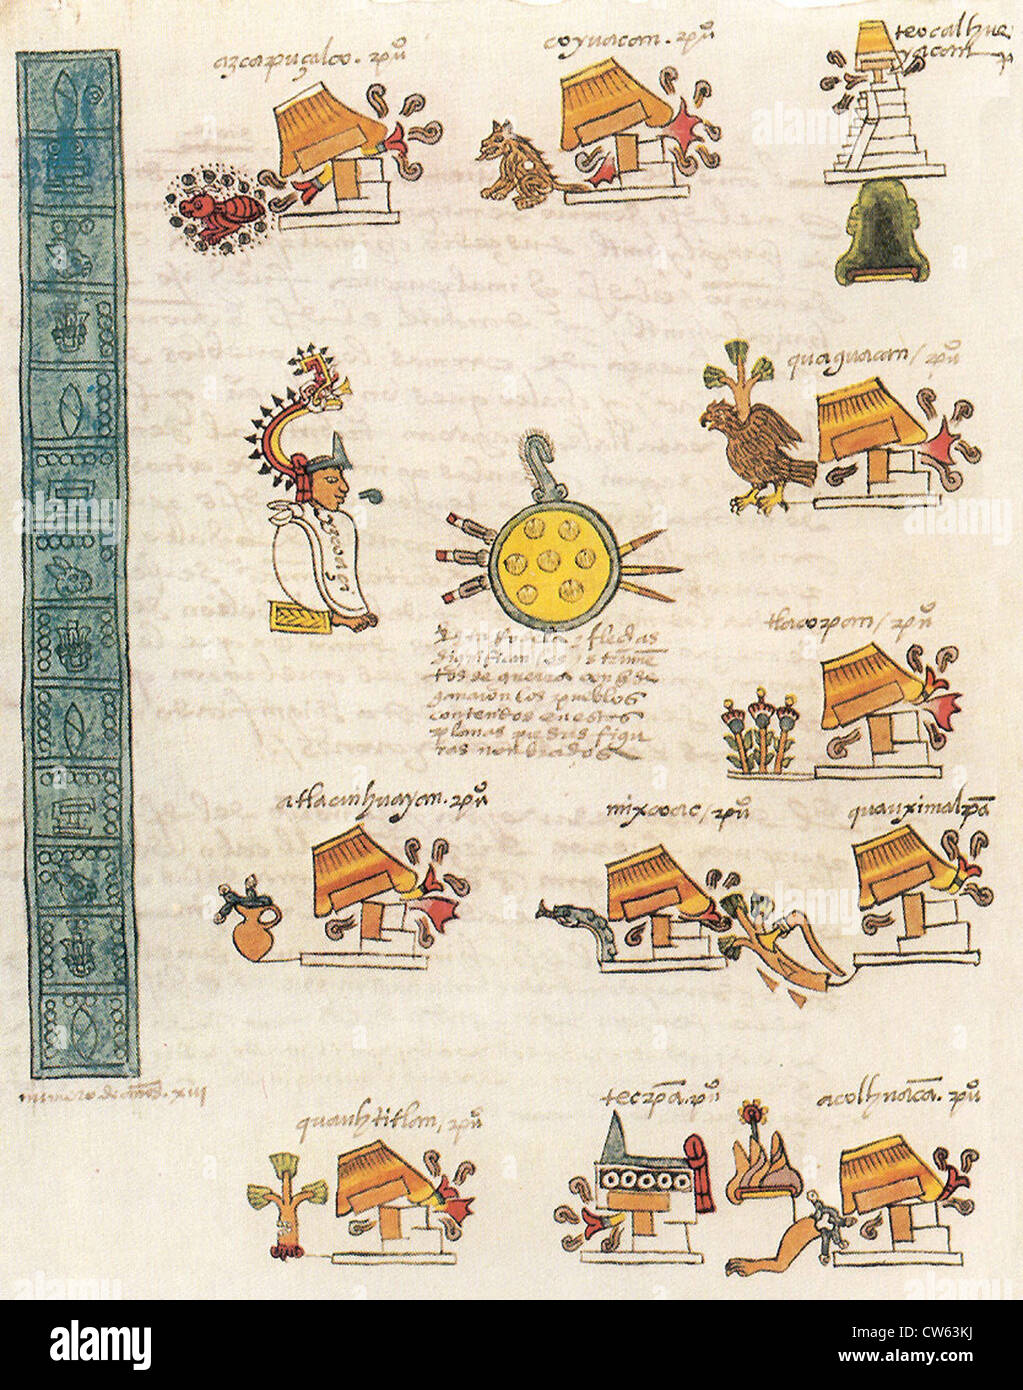 azcapuçalco. puº
coyuacan. puº
teocalhue
yacan p
quaguacan / puº
ytzcoatçi
tlacopan / puº
Esta rodela y flechas
significan / es ynstrumē
tos de guerra con q̄ se
ganaron los pueblos
contenidos en estas
planas que sus figu
ras nonbrados
atlacuihuayan. puº
mixcoac / puº
quauximalpā
numero de años. xiii
quauhtitlan / puº
tecpā. puº
acolhuacā. puº
alamy
Image ID: CW63KJ
www.alamy.com